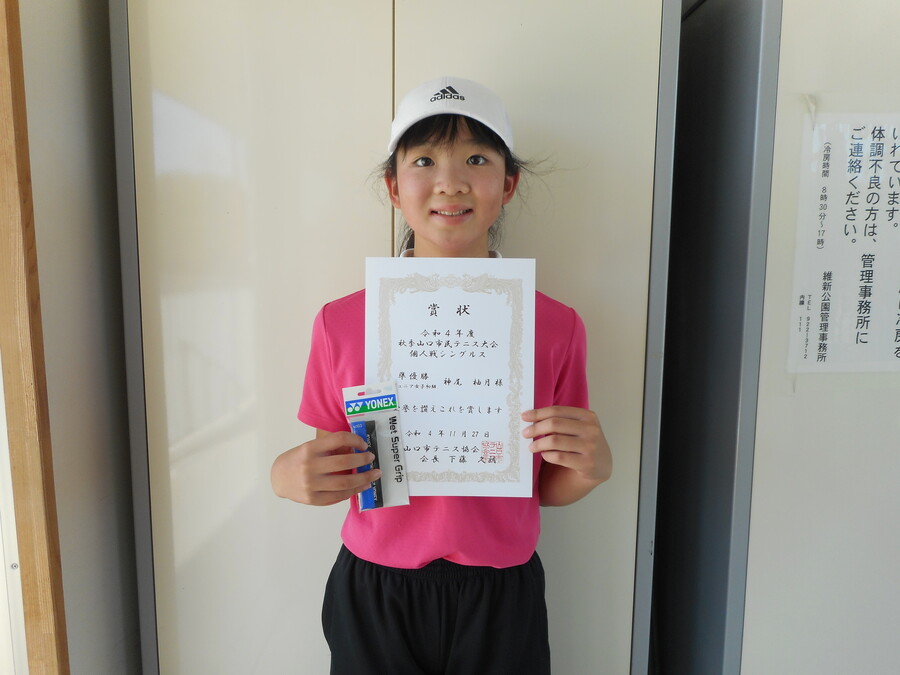 adidas
賞状
令和4年度
秋季山口市民テニス大会
個人戦シングルス
準優勝 神尾 柚月様
を讃えこれを賞します
令和4年11月27日
山口市テニス協会
会長 下藤
YONEX
Wet Super Grip
いれています。
体調不良の方は、管理事務所に
ご連絡ください。
(冷房時間 8時30分~17時)
維新公園管理事務所
TEL 922-2712
内線 111